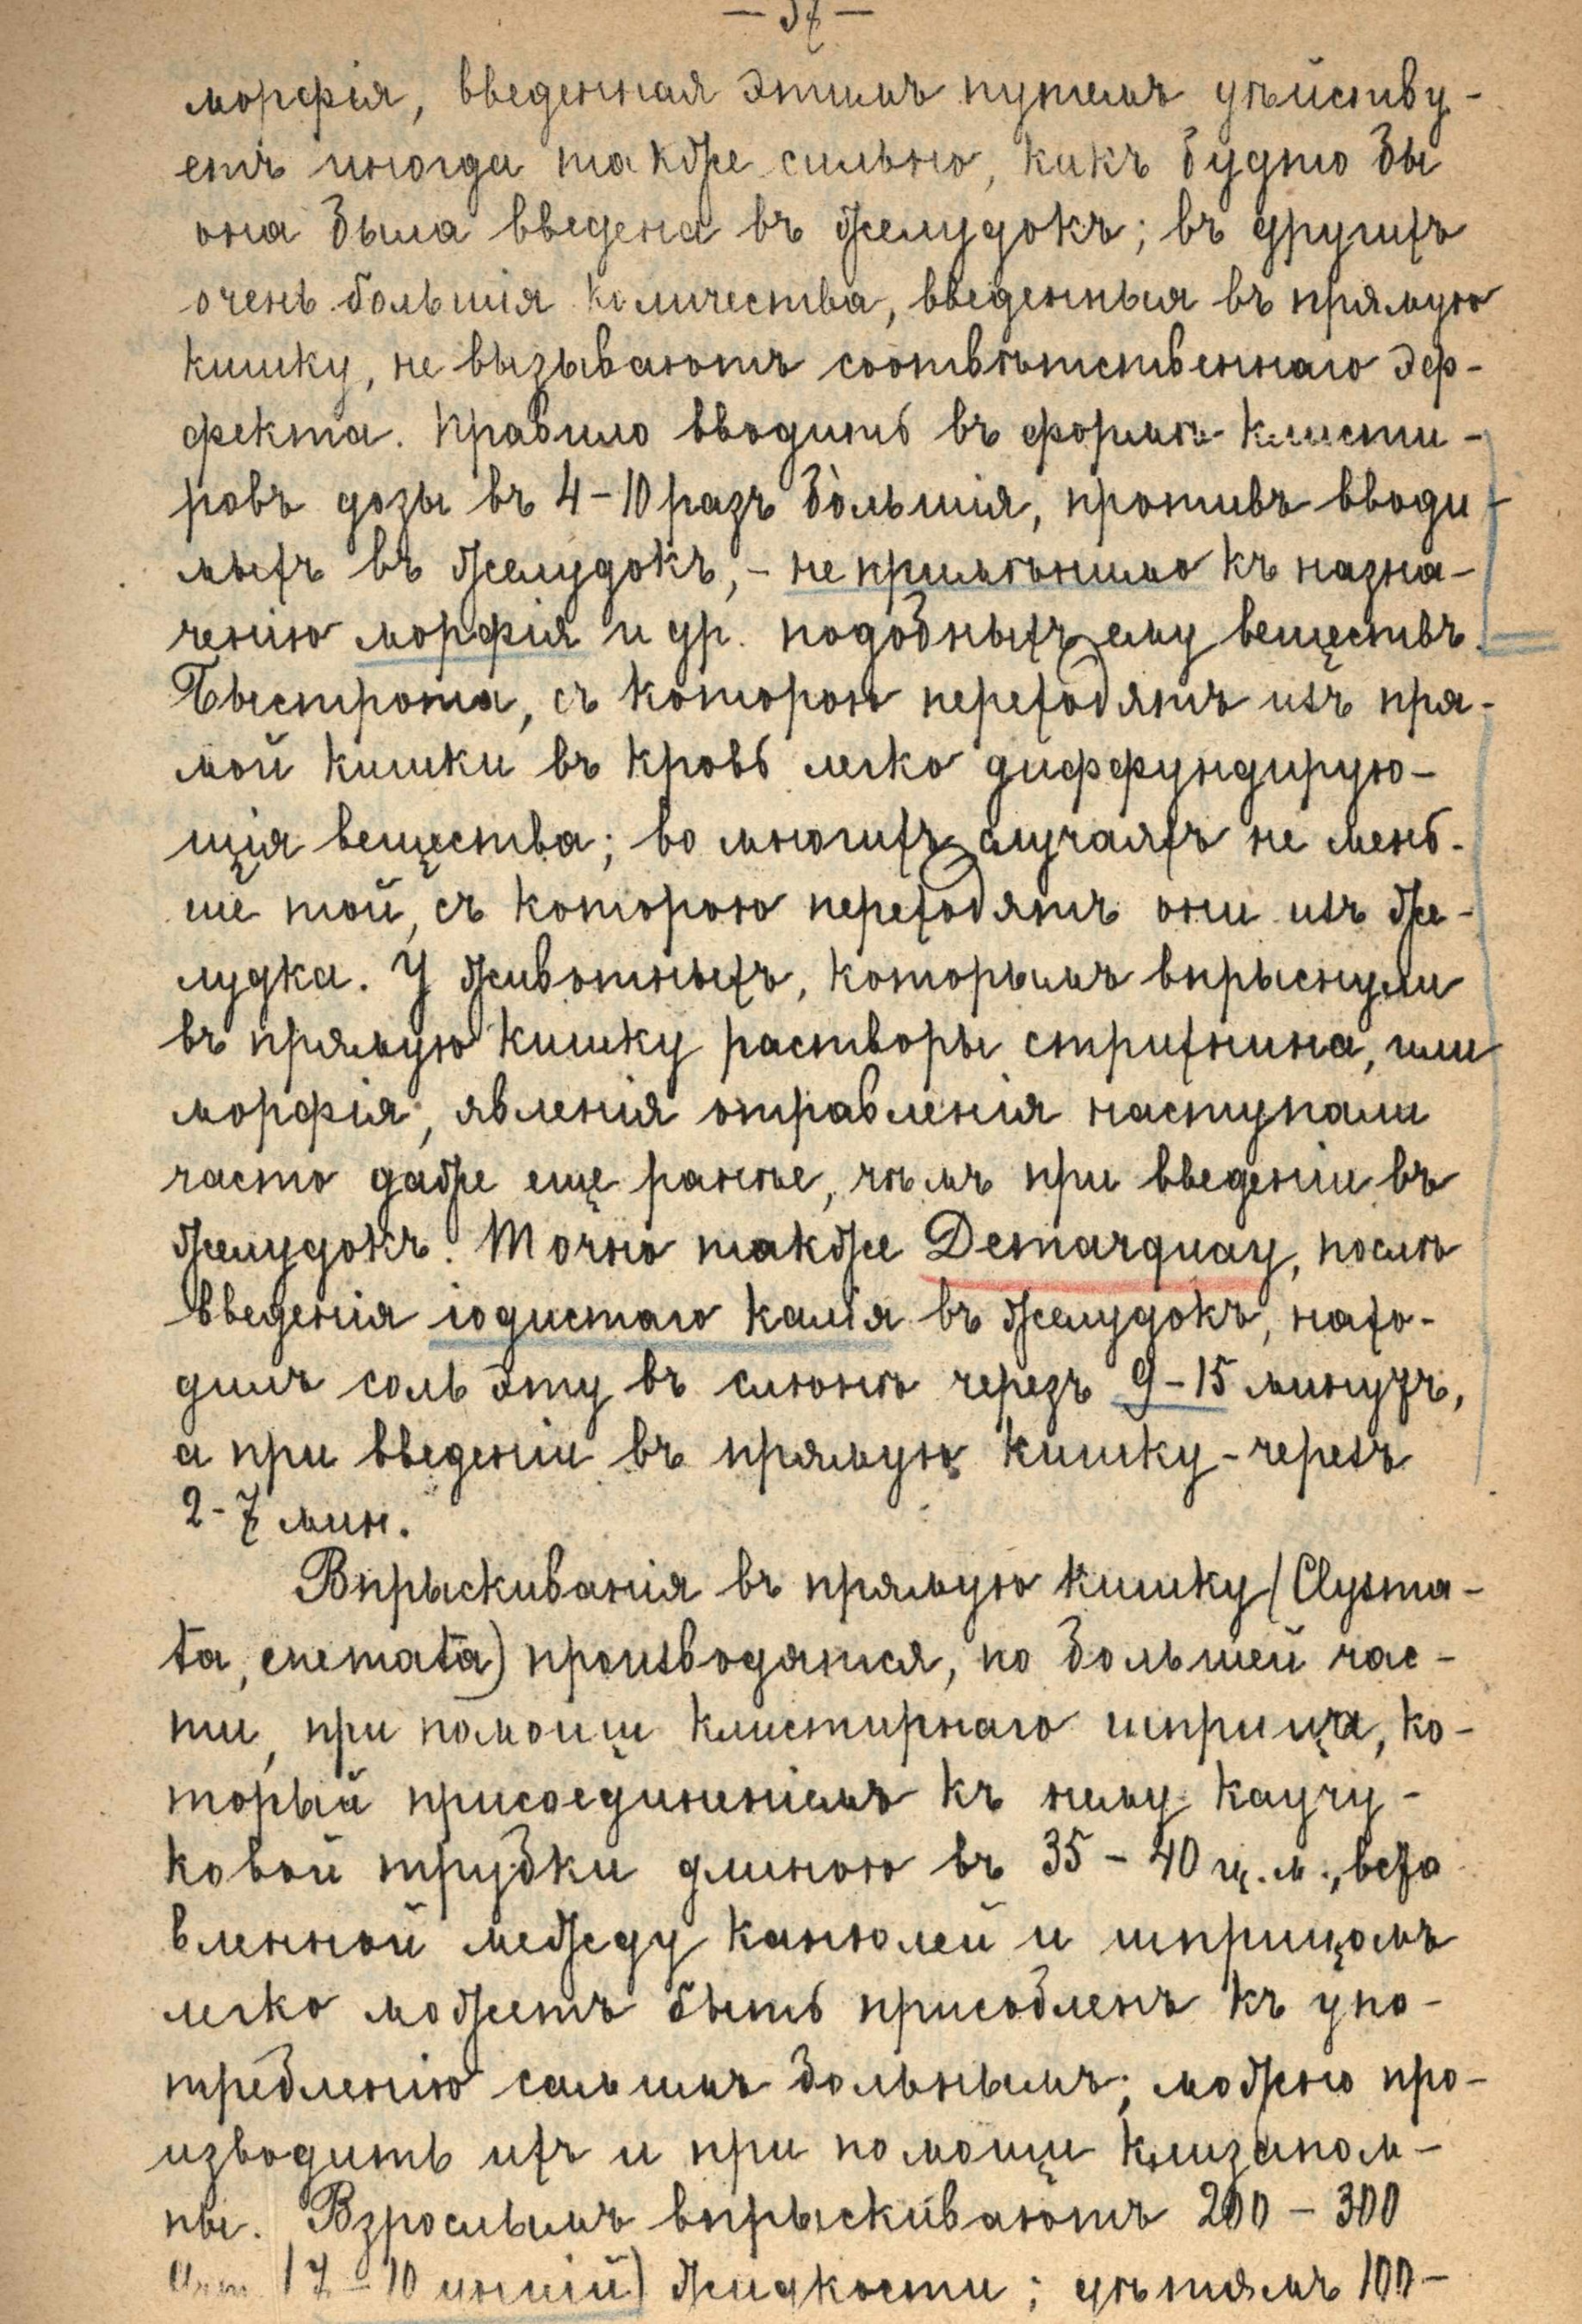 — 37 —
морфія, введенная этимъ путемъ дѣйству-
етъ иногда также сильно, какъ будто бы
она была введена въ желудокъ; въ другихъ
очень большія количества, введенныя въ прямую
кишку, не вызываютъ соотвѣтственнаго эф-
фекта. Правило вводить въ формѣ клисти-
ровъ дозы въ 4-10 разъ бо̀льшія, противъ вводи-
мыхъ въ желудокъ, - не примѣнимо къ назна-
ченію морфія и др. подобныхъ ему веществъ.
Быстрота, съ которою переходятъ изъ пря-
мой кишки въ кровь легко диффундирую-
щія вещества; во многихъ случаяхъ не мень-
ше той, съ которою переходятъ они изъ же-
лудка. У животныхъ, которымъ впрыснули
въ прямую кишку растворы стрихнина, или
морфія, явленія отравленія наступали
часто даже еще ранѣе, чѣмъ при введеніи въ
желудокъ. Точно также Demarquay, послѣ
введенія іодистаго калія въ желудокъ, нахо-
дилъ соль эту въ слюнѣ черезъ 9-15 минутъ,
а при введеніи въ прямую кишку - черезъ
2-7 мин.
Впрыскиванія въ прямую кишку (Clysma-
ta, enemata) производятся, по большей час-
ти, при помощи клистирнаго шприца, ко-
торый присоединеніемъ къ нему каучу-
ковой трубки длиною въ 35 - 40 ц. м., вста
вленной между канюлей и шприцомъ
легко можетъ быть присобленъ къ упо-
требленію самимъ больнымъ; можно про-
изводить ихъ и при помощи клизопом-
пы. Взрослымъ впрыскиваютъ 200 - 300
(7 - 10 унцій) жидкости; дѣтямъ 100-